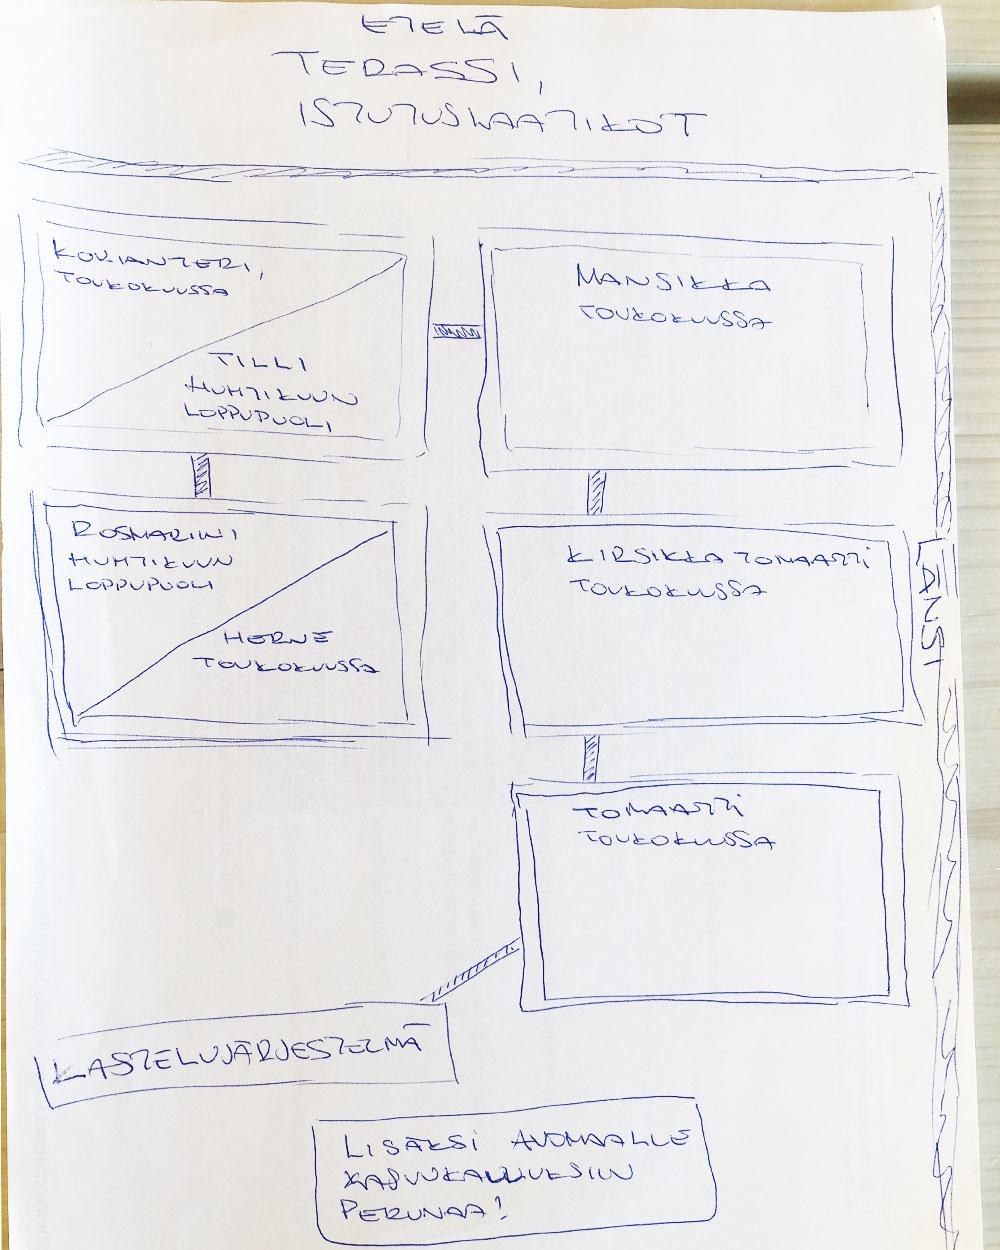 ETELÄ
TERASSI,
ISTUTUSLAATIKOT
KORIANTERI,
TOUKOKUUSSA
TILLI
HUHTIKUUN
LOPPUPUOLI
MANSIKKA
TOUKOKUUSSA
ROSMARIINI
HUHTIKUUN
LOPPUPUOLI
HERNE
TOUKOKUUSSA
KIRSIKKATOMAATTI
TOUKOKUUSSA
LÄNSI
TOMAATTI
TOUKOKUUSSA
KASTELUJÄRJESTELMÄ
LISÄKSI AVOMAALLE
PERUNAA!